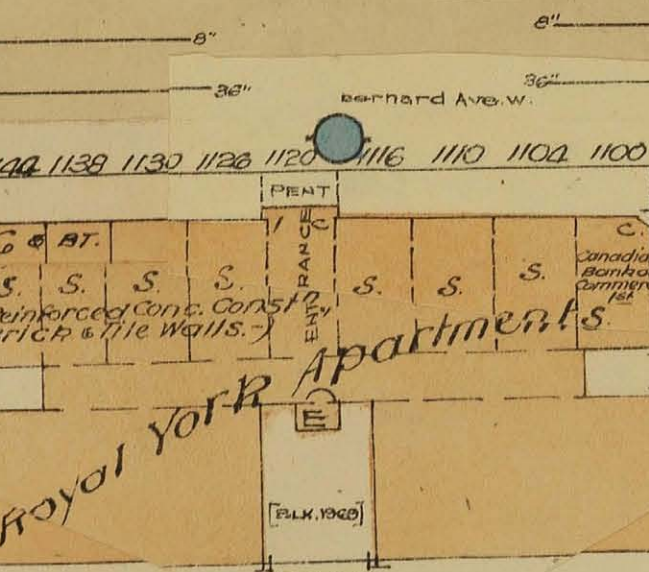 8" 8"
36" 36"
Bernard Ave. W.
1144 1138 1130 1126 1120 1116 1110 1104 1100
PENT
BT. 1 C C.
ENTRANCE
S. S. S. S. S. S. S.
Canadia
Bank o
Commer
1st
S.
einforced Conc. Const'n.
rick & Tile Walls.-)
Royal York Apartments
E
[BLK. 1969]